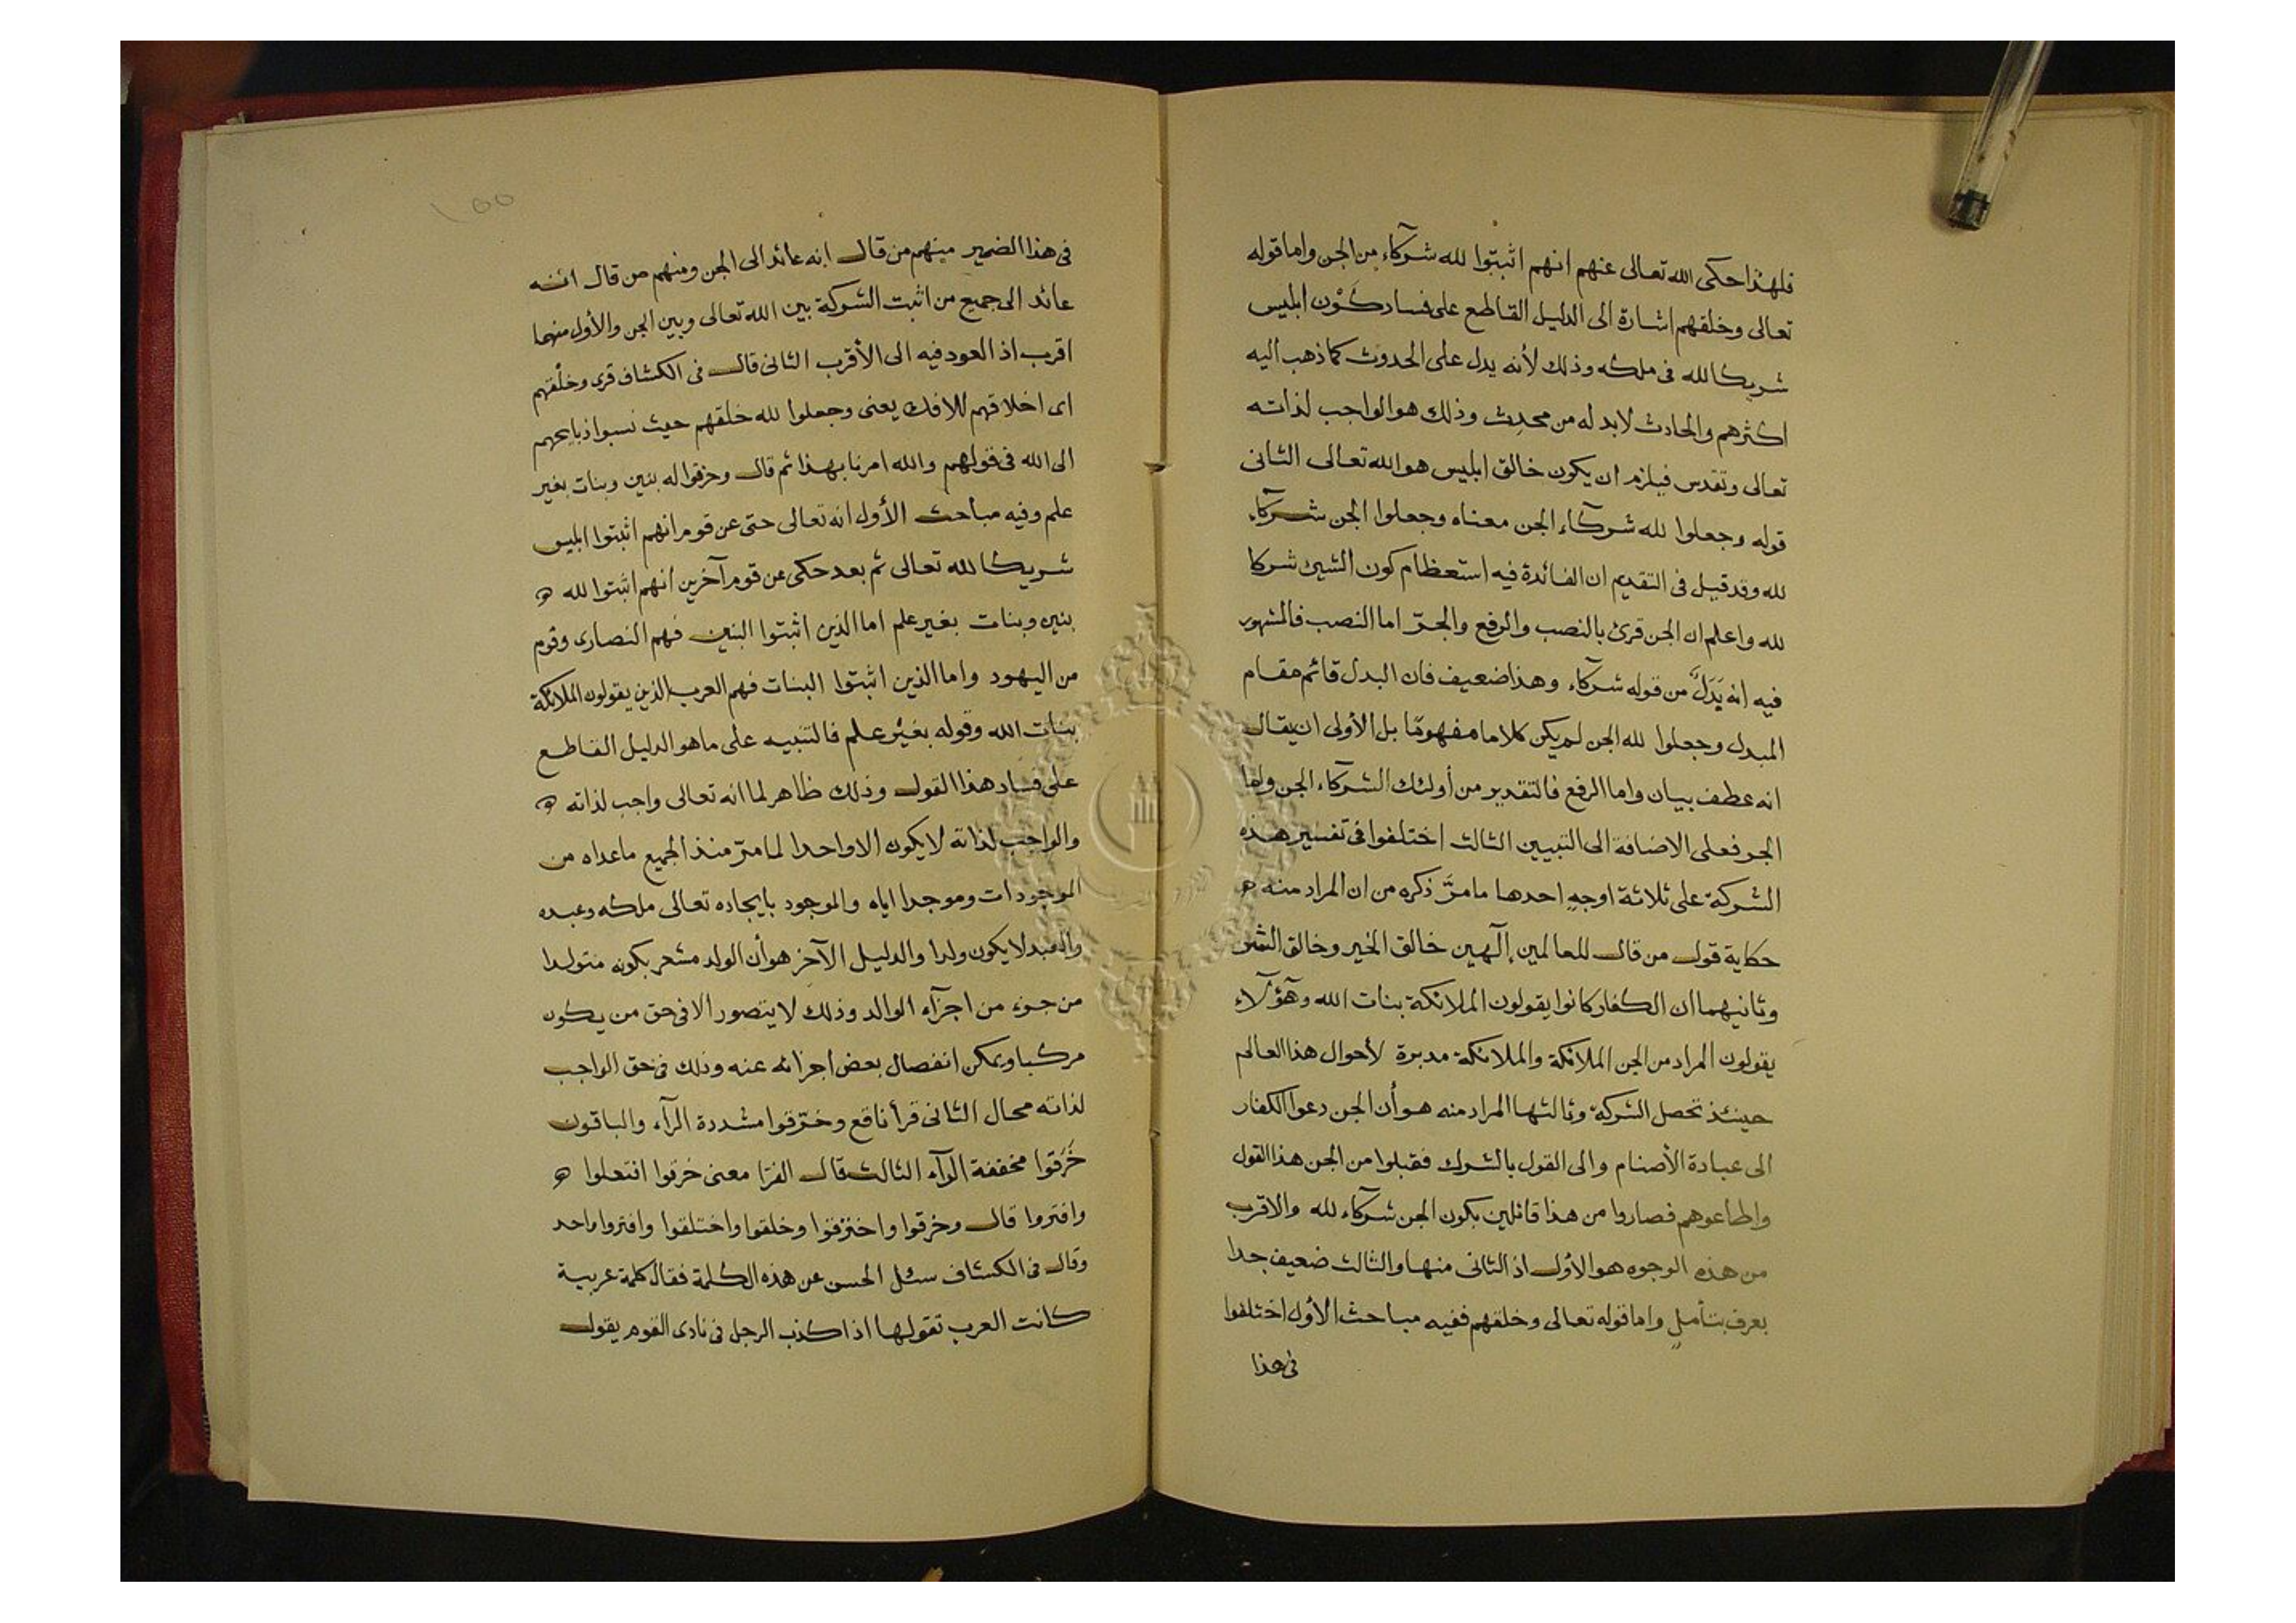 فلهذا حكى الله تعالى عنهم انهم اثبتوا لله شركآء من الجن واما قوله
تعالى وخلقهم اشارة الى الدليل القاطع على فساد كَوْن ابليس
شريكا لله فى ملكه وذلك لأنه يدل على الحدوث كما ذهب اليه
اكثرهم والحادث لابد له من محدِث وذلك هو الواجب لذاته
تعالى وتقدس فيلزم ان يكون خالق ابليس هو الله تعالى الثانى
قوله وجعلوا لله شركآء الجن معناه وجعلوا الجن شركآء
لله وقد قيل فى التقديم ان الفائدة فيه استعظام كون الشيئ شركا
لله واعلم ان الجن قرئ بالنصب والرفع والجرّ اما النصب فالمشهور
فيه انه بَدَلٌ من قوله شركآء وهذا ضعيف فان البدل قائم مقام
المبدل وجعلوا لله الجن لم يكن كلاما مفهومًا بل الأولى ان يقال
انه عطف بيان واما الرفع فالتقدير من أولئك الشركآء الجن واما
الجر فعلى الاضافة الى التبيين الثالث اختلفوا فى تفسير هذه
الشركة على ثلاثة اوجهٍ احدها ما مرَّ ذكره من ان المراد منه
حكاية قول من قال للعالمين إلٓهين خالق الخير وخالق الشر
وثانيهما ان الكفار كانوا يقولون الملائكة بنات الله وهٓؤلآء
يقولون المراد من الجن الملائكة والملائكة مدبرة لأحوال هذا العالم
حينئذ تحصل الشركة وثالثها المراد منه هو أن الجن دعوا الكفار
الى عبادة الأصنام والى القول بالشرك فقبلوا من الجن هذا القول
واطاعوهم فصاروا من هذا قائلين بكون الجن شركآء لله والاقرب
من هذه الوجوه هو الأول اذ الثانى منها والثالث ضعيف جدا
يعرف بتأملٍ واما قوله تعالى وخلقهم ففيه مباحث الأول اختلفوا
فى هذا
١٥٥
فى هذا الضمير منهم من قال انه عائد الى الجن ومنهم من قال انه
عائد الى جميع من اثبت الشركة بين الله تعالى وبين الجن والأول منهما
اقرب اذ العود فيه الى الأقرب الثانى قال فى الكشاف قرى وخلْقهم
اى اخلاقهم للافك يعنى وجعلوا لله خلقهم حيث نسبوا ذبايحهم
الى الله فى قولهم والله امرنا بهذا ثم قال وخرقوا له بنين وبنات بغير
علم وفيه مباحث الأول انه تعالى حتى عن قوم انهم اثبتوا ابليس
شريكا لله تعالى ثم بعد حكى عن قوم آخرين انهم اثبتوا لله
بنين وبنات بغير علم اما الذين اثبتوا البنين فهم النصارى وقوم
من اليهود واما الذين اثبتوا البنات فهم العرب الذين يقولون الملائكة
بنات الله وقوله بغير علم فالتنبيه على ما هو الدليل القاطع
على فساد هذا القول وذلك ظاهر لما انه تعالى واجب لذاته
والواجب لذاته لا يكون الا واحدا لما مرّ منذ الجميع ماعداه من
الموجودات وموجدا اياه والموجود بايجاده تعالى ملكه وعبده
والعبد لا يكون ولدا والدليل الآخر هو أن الولد مشعر بكونه متولدا
من جزء من اجزآء الوالد وذلك لا يتصور الا فى حق من يكون
مركبا ويمكن انفصال بعض اجزائه عنه وذلك فى حق الواجب
لذاته محال الثانى قرأ نافع وخرّقوا مشددة الرآء والباقون
خَرَقوا مخففة الرآء الثالث قال الفرّا معنى خرقوا افتعلوا
وافتروا قال وخرقوا واخترقوا وخلقوا واختلقوا وافتروا واحد
وقال فى الكشاف سئل الحسن عن هذه الكلمة فقال كلمة عربية
كانت العرب تقولها اذا كذب الرجل فى نادى القوم يقول